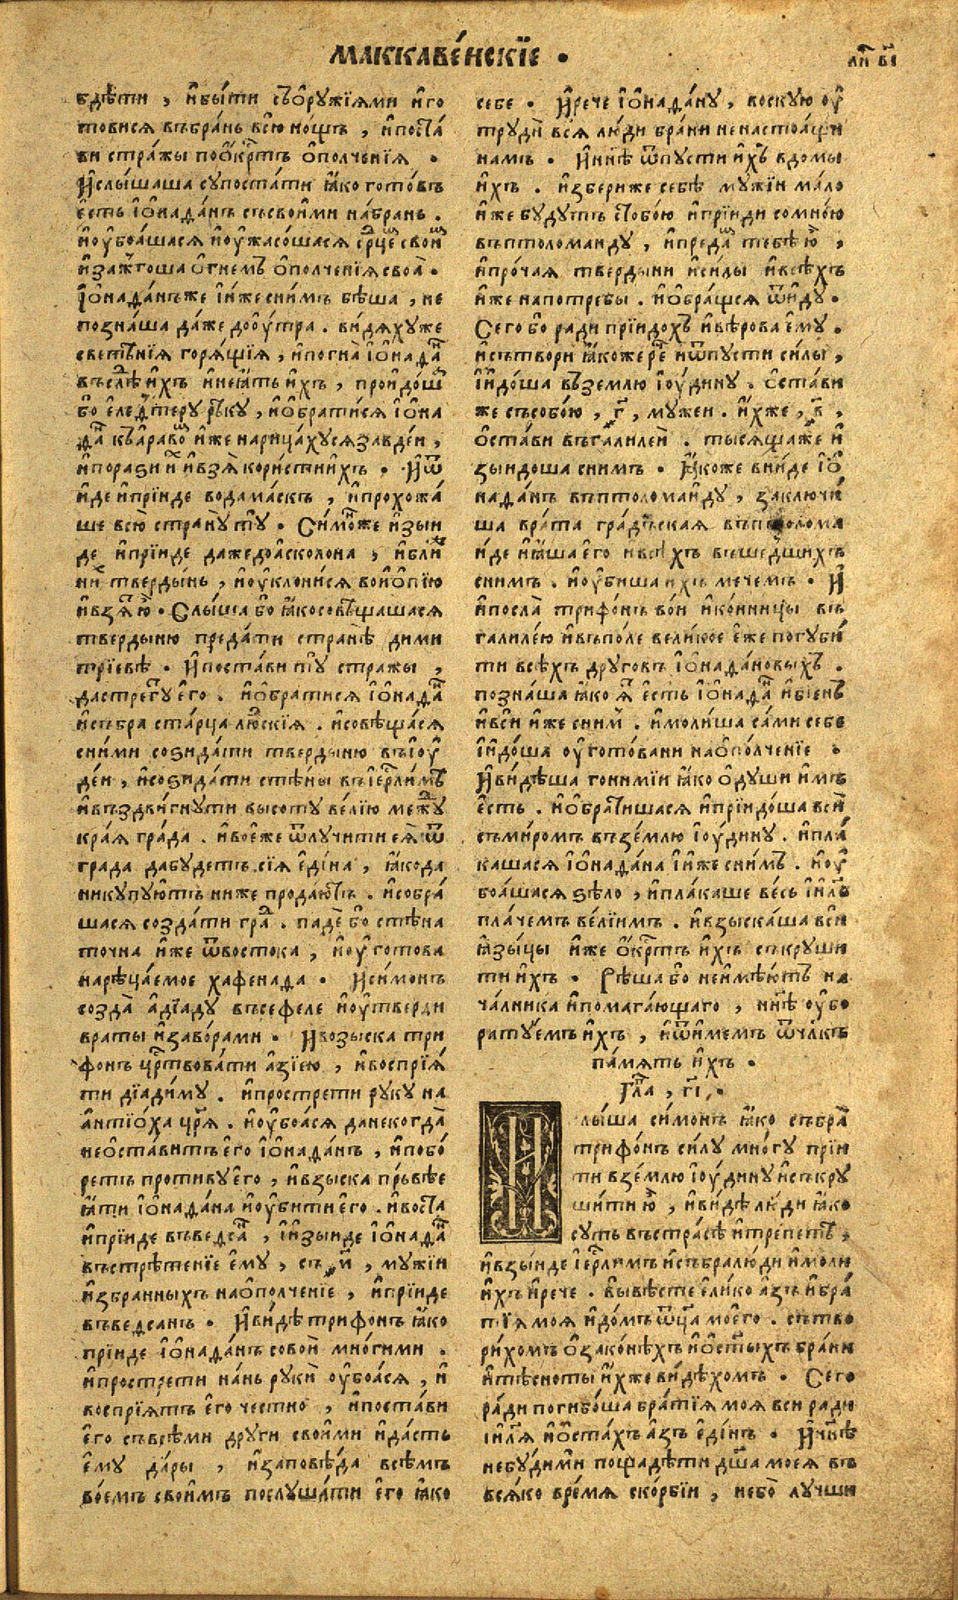 МАККАВЕ́НСКЇЕ .
ЛИ ВІ
бдѣти , и҆бы́ти съѻ҆рꙋжїѧми и҆го
товисѧ въбра́нь всю̀ но́щъ , и҆поста́
ви стра́жы поѻ҆́крⷭтъ ѻ҆полче́нїѧ .
И҆слы́шаша сꙋпоста́ти ꙗ҆́ко гото́въ
є҆́сть і҆ѡ҆нада́нъ съсвои́ми на́брань .
и҆ѹ҆боѧ́шасѧ и҆ѹ҆жасо́шасѧ срⷣцеⷨ свои́ⷨ
и҆зажго́ша ѻ҆гнемъ ѻ҆полче́нїѧ своѧ̀ .
І҆ѡ҆нада́нъже и҆и҆́же сни́мъ бѣ́ша , не
позна́ша да́же доѹ҆́тра . ви́дѧхꙋже
светѣ́нїѧ горѧ́щїѧ , и҆погна̀ і҆ѡ҆нада́ⷩ
въслѣⷣ и҆́хъ и҆неꙗ҆́тъ и҆́хъ , проидо́шаⷡ
бо є҆леѵⷴтерꙋ рѣкꙋ , и҆ѻ҆брати́сѧ і҆ѡ҆на
да́ⷩ къа҆равоⷨ и҆́же нарица́хꙋсѧ завде́и ,
и҆порази иⷯ и҆взѧ̀ кори́сти и҆́хъ . И҆ѿ
и҆́де и҆прїи́де вода́маскъ , и҆прохожа́
ше всю̀ странꙋ тꙋ̀ . Си́моⷩже и҆зы́и
де и҆прїи́де даже до а҆сколона , и҆бли́ⷤ
ниⷯ тверды́нь , и҆ѹ҆клони́сѧ воиѻ҆пі́ю
и҆взѧ̀ ю҆̀ . Слы́ша бо ꙗ҆́ко совѣща́шасѧ
тверды́ню преда́ти странѣ̀ дими
трїевѣ . И҆поста́ви тꙋ̀ стражы ,
да стрегꙋⷮ є҆го̀ . и҆ѻ҆брати́сѧ і҆ѡ҆нада́ⷩ
и҆събра ста́рца лю́ⷣскїѧ . и҆совѣща́сѧ
сни́ми созида́ти тверды́ню въі҆ѹ
де́и , и҆созида́ти стѣ́ны въі҆єрⷭли́мѣ
и҆въздви́гнꙋти высотꙋ ве́лїю межⷣꙋ
кра́ѧ гра́да . и҆воє҆́же ѿлꙋчити є҆ѧ̀ ѿ
града да бꙋ́детъ сїѧ̀ є҆ди́на , ꙗ҆́ко да
ни кꙋпꙋ́ютъ ниже продаю́тъ . и҆собра́
шасѧ созда́ти граⷣ . падѐ бо стѣна
точна и҆же ѿвостока , и҆ѹ҆гото́ва
нарѣца́емое хафенада . И҆си́монъ
созда̀ а҆дїадꙋ въсефеле и҆ѹ҆тверди
враты и҆забо́рами . И҆возыска три
фонъ црⷭ҇твова́ти а҆зі́ею , и҆воспрїѧ́
ти дїади́мꙋ . и҆простре́ти рꙋкꙋ на
а҆нтїо́ха црѧ̀ . и҆ѹ҆боѧ́сѧ да некогда̀
неѡ҆ста́витъ є҆го̀ і҆ѡ҆нада́нъ , и҆побо́
ретъ проти́вꙋ є҆го̀ , и҆взы́ска пръ́вѣе
ꙗ҆́ти і҆ѡ҆нада́на и҆ѹ҆би́ти є҆го̀ . и҆воста̀
и҆прїи́де въведсаⷩ , и҆и҆зы́нде і҆ѡ҆нада́ⷩ
въстрѣ́тенїе є҆мꙋ̀ , съ , м҃ , мꙋжїи
и҆збранныхъ наѻ҆полче́нїе , и҆прїи́де
въведсанъ . И҆ви́дѣ три́фонъ ꙗ҆́ко
прїи́де і҆ѡ҆нада́нъ совои́ мно́гими .
и҆простре́ти на́нь рꙋки̂ ѹ҆боѧ́сѧ , и҆
воспрїѧ́тъ є҆го че́стно , и҆поста́ви
є҆го̀ съвсѣ́ми дрꙋги свои́ми и҆да́стъ
є҆мꙋ̀ да́ры , и҆заповѣ́да всѣ́мъ
во́емъ свои́мъ послꙋша́ти є҆го̀ ꙗ҆́ко
себе . И҆речѐ і҆ѡ҆нада́нꙋ , воскꙋю ѹ҆
трꙋди́ всѧ̀ лю́ди бра́ни ненастоѧ́щи
намъ . И҆нн҃ѣ ѿпꙋсти и҆́хъ вдомы
и҆́хъ . и҆збериже себѣ̀ мꙋжїи ма́ло
и҆же бꙋдꙋтъ стобо́ю и҆прїиди сомно́ю
въптоломаидꙋ , и҆преда́мⷨ тебѣ̀ ю҆̀ ,
и҆про́чаѧ тверды́ни и҆си́лы и҆всѣ́хъ
и҆́же напотребы . и҆ѻ҆бра́щсѧ ѿи́дꙋ .
Сего̀ бо ра́ди прїидо́хъ и҆вѣ́рова є҆мꙋ̀ .
и҆сътвори ꙗ҆́коже речⷭе и҆ѿпꙋсти си́лы ,
и҆и҆до́ша вземлю і҆ѹ́динꙋ . ѻ҆ста́ви
же съсобо́ю , г҃ , мꙋ́жеи . и҆́хже , в҃ ,
ѻ҆ста́ви въгалиле́и . ты́сѧщаже и҆
зыидоша сни́мъ . Ꙗ҆́коже вни́де і҆ѻ҆
нада́нъ вптоломаи́дꙋ , заключи́
ша врата гра́дьскаѧ въптолома
и҆де и҆ꙗ҆́ша є҆го̀ и҆всѣхъ въше́дшихъ
снимъ . и҆ѹ҆би́ша и҆хъ мече́мъ . И҆
и҆посла̀ три́фонъ вои и҆ко́нницы въ
галиле́ю и҆въпо́ле вели́кое є҆же погꙋби́
ти всѣ́хъ дрꙋговъ і҆ѡ҆нада́новыхъ .
позна́ша ꙗ҆́ко ꙗ҆́ⷮ є҆́сть і҆ѡ҆нада́ⷩ и҆бїе́нъ
и҆вси и҆же сниⷨ . и҆моли́ша са́ми себе
и҆и҆до́ша ѹ҆гото́вани наѻ҆полче́нїе .
И҆ви́дѣша гони́мїи ꙗ҆́ко ѻ҆ дꙋши и҆́мъ
є҆сть . и҆ѻ҆брати́шасѧ и҆прїидо́ша вси̂
съми́ромъ въземлю і҆ѹ́динꙋ . и҆пла́
кашасѧ і҆ѡ҆нада́на и҆и҆́же сни́мъ . и҆ѹ҆
боѧ́шасѧ ѕѣло , и҆пла́каше ве́сь і҆и҃ль
пла́чемъ ве́лїимъ . и҆взыска́ша вси
ꙗ҆зы́цы и҆же ѻ҆́крⷭтъ и҆́хъ съкрꙋши
ти и҆́хъ . Рѣша бо неи́мѣютъ на
ча́лника и҆помага́ющаго , нн҃ѣ ѹ҆бо
ратꙋ́емъ и҆́хъ , и҆ѿи́мемъ ѿчл҃къ
па́мѧть и҆́хъ .
Гла҃ , гі҃ .
И҆слы́ша си́монъ ꙗ҆́ко събра̀
трифо́нъ си́лꙋ мно́гꙋ прїи
ти взе́млю і҆ѹ́динꙋ и҆съкрꙋ
ши́ти ю҆̀ , и҆ви́дѣ лю́ди ꙗ҆́ко
сꙋть въстра́сѣ и҆тре́петѣ ,
и҆взы́иде і҆єрⷭли́мъ и҆събра лю́ди и҆моли
и҆́хъ и҆рече . вывѣсте є҆ли́ко а҆́зъ и҆бра́
тїѧ моѧ̀ и҆до́мъ ѿц҃а моє҆го . сътво
ри́хомъ ѻ҆зако́нѣхъ и҆ѻ҆ст҃ы́хъ бра́ни
и҆тѣсноты̀ и҆́хже ви́дѣхомъ . Сего̀
ра́ди погибо́ша бра́тїѧ моѧ вси ради
і҆и҃лѧ и҆ѻ҆ста́хъ а҆́зъ є҆ди́нъ . И҆нн҃ѣ
небꙋ́ди ми̂ пощадѣ́ти дш҃а моеѧ̀ въ
всѧ́ко вре́мѧ ско́рбїи , не бо̀ лꙋчши